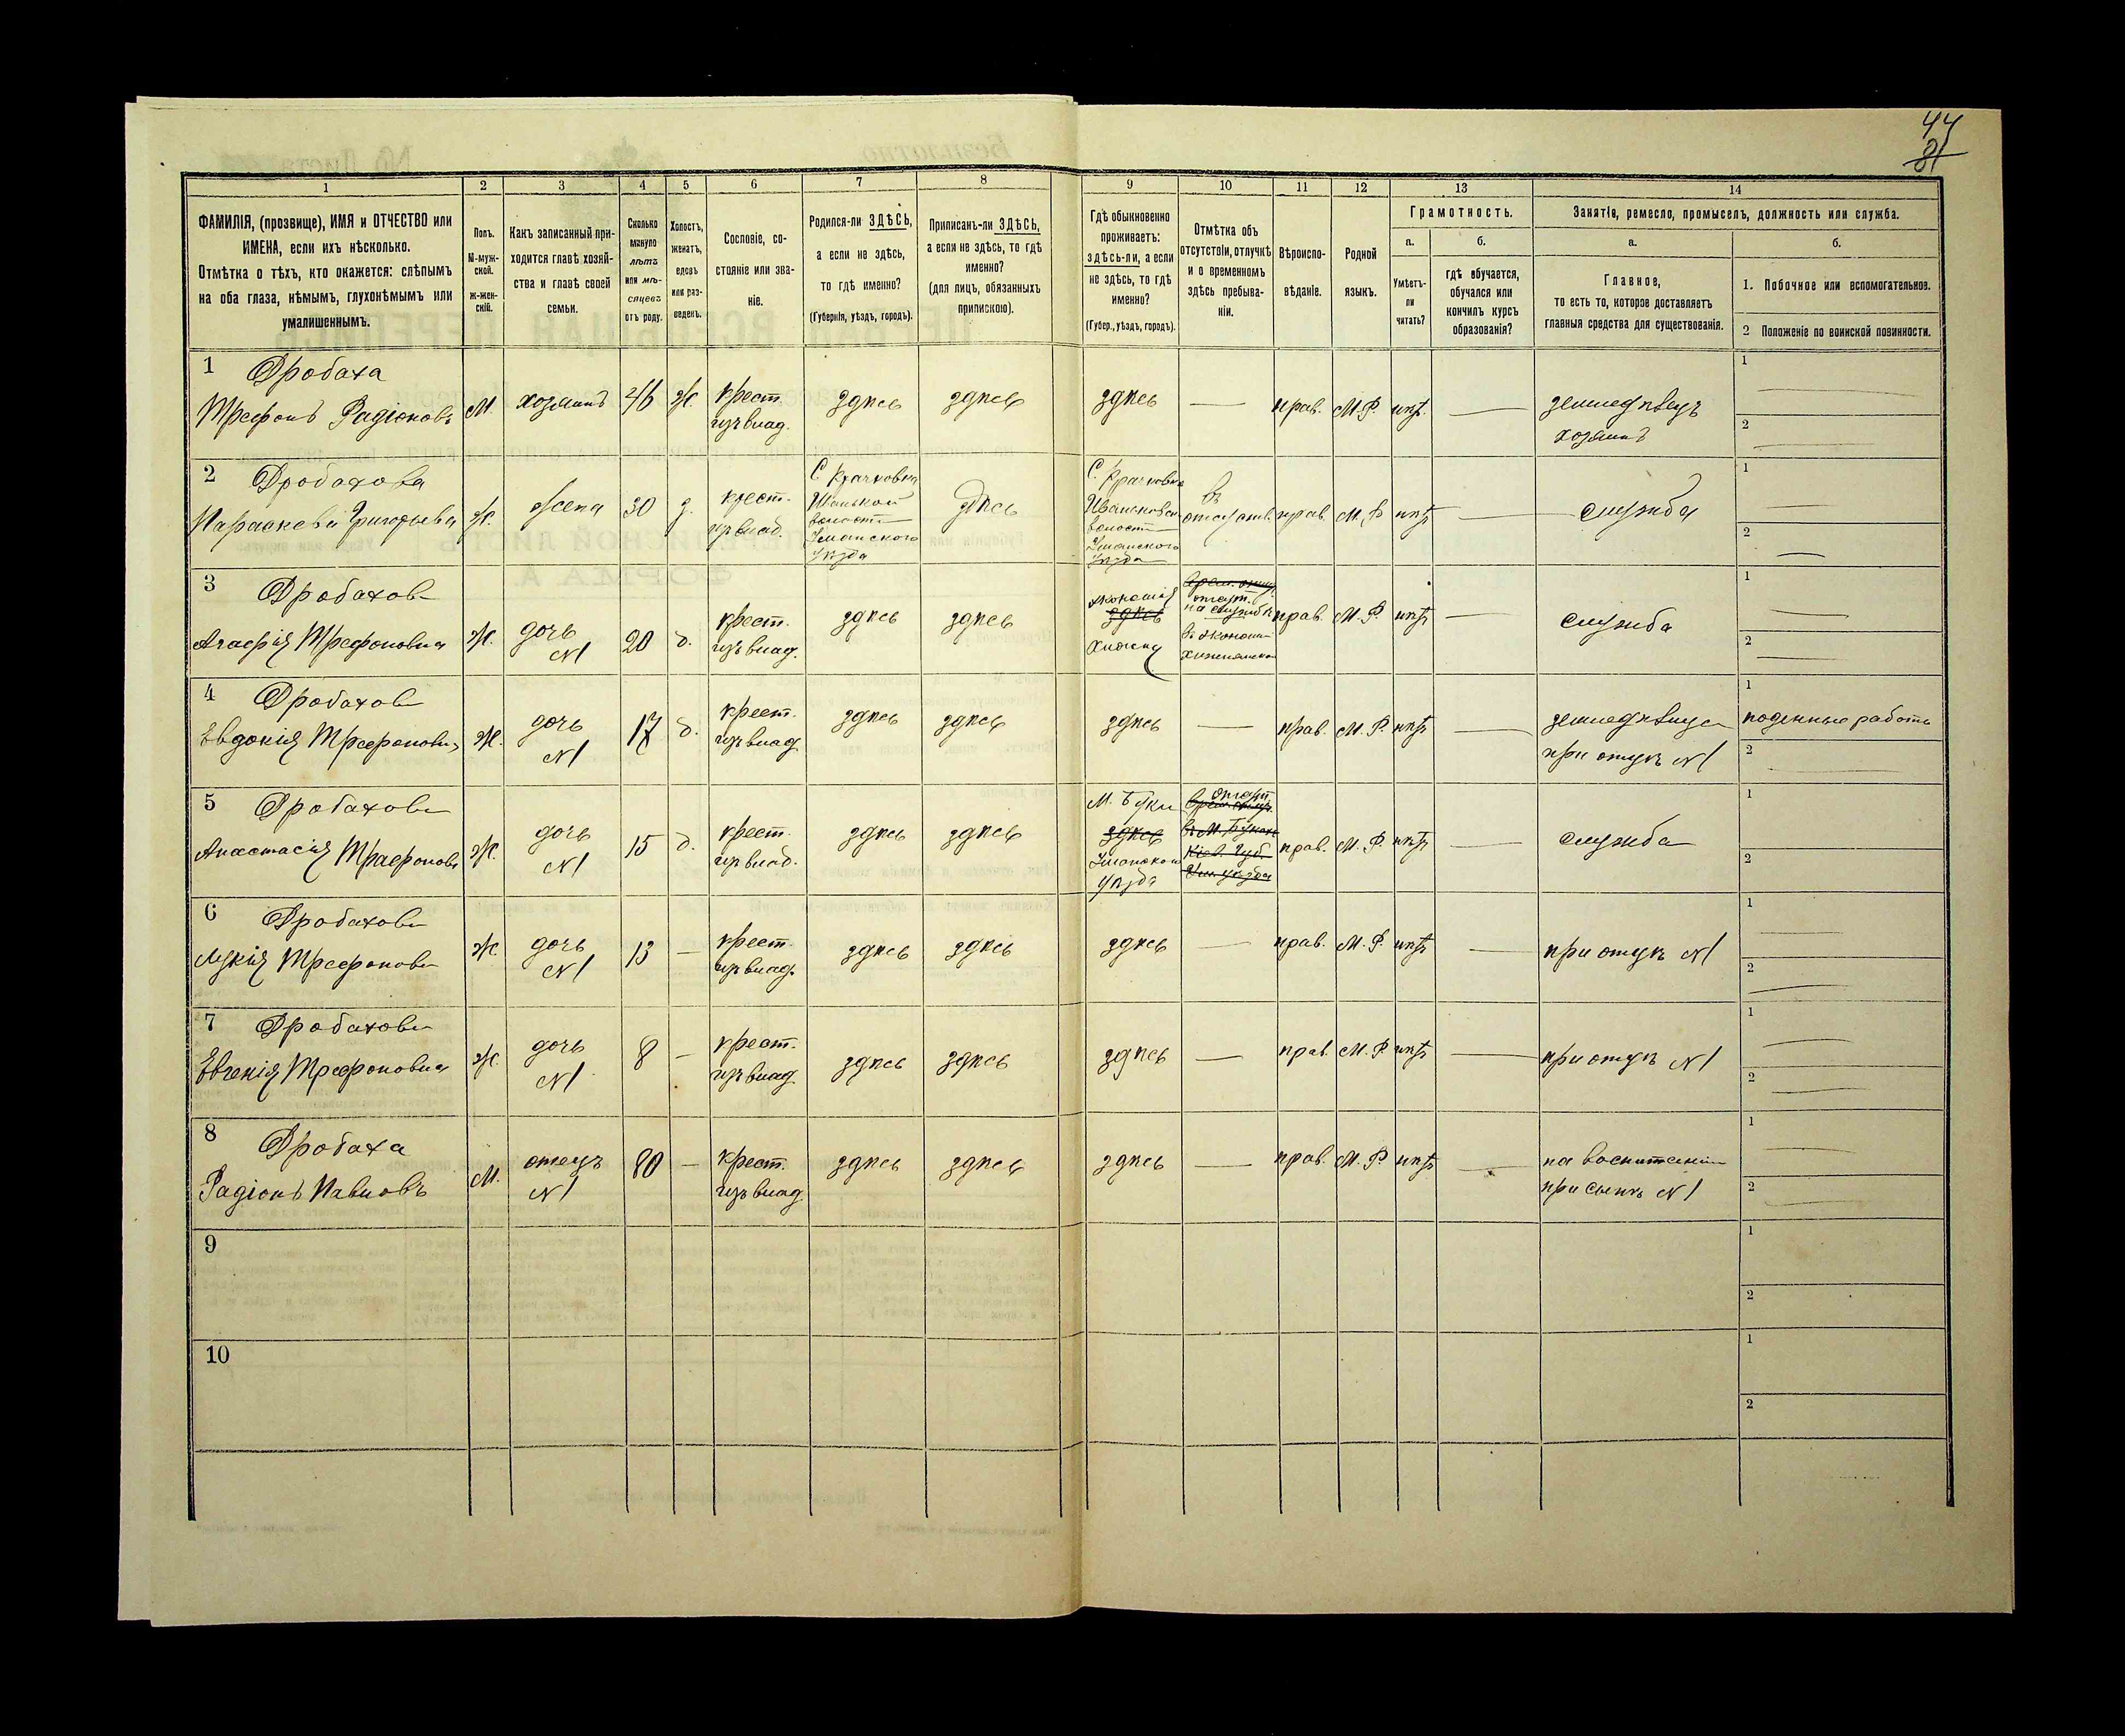 44
81
1
2
3
4
5
6
7
8
9
10
11
12
13
14
ФАМИЛІЯ, (прозвище), ИМЯ и ОТЧЕСТВО или
ИМЕНА, если ихъ нѣсколько.
Отмѣтка о тѣхъ, кто окажется: слѣпымъ
на оба глаза, нѣмымъ, глухонѣмымъ или
умалишеннымъ.
Полъ.
М-муж-
ской.
Ж-жен-
скій.
Какъ записанный при-
ходится главѣ хозяй-
ства и главѣ своей
семьи.
Сколько
минуло
лѣтъ
или мѣ-
сяцевъ
отъ роду.
Холостъ,
женатъ,
вдовъ
или раз-
веденъ.
Сословіе, со-
стояніе или зва-
ніе.
Родился-ли ЗДѢСЬ,
а если не здѣсь,
то гдѣ именно?
(Губернія, уѣздъ, городъ).
Приписанъ-ли ЗДѢСЬ,
а если не здѣсь, то гдѣ
именно?
(для лицъ, обязанныхъ
припискою).
Гдѣ обыкновенно
проживаетъ:
здѣсь-ли, а если
не здѣсь, то гдѣ
именно?
(Губер., уѣздъ, городъ).
Отмѣтка объ
отсутствіи, отлучкѣ
и о временномъ
здѣсь пребыва-
ніи.
Вѣроиспо-
вѣданіе.
Родной
языкъ.
Грамотность.
а.
Умѣетъ-
ли
читать?
б.
гдѣ обучается,
обучался или
кончилъ курсъ
образованія?
Занятіе, ремесло, промыселъ, должность или служба.
а.
Главное,
то есть то, которое доставляетъ
главныя средства для существованія.
б.
1. Побочное или вспомогательное.
2 Положеніе по воинской повинности.
1 Дробаха
Трефонъ Радіоновъ М. хозяинъ 46 ж. крест. изъ влад. здѣсь здѣсь здѣсь — прав. М.Р. нѣтъ — земледѣлецъ
хозяинъ
1
2
2 Дробахова
Параскева Григорьева ж. жена 30 з. крест. изъ влад.
С Крачковка
волости
Уманского
уѣзда
здѣсь
С. Крачковка
Иваньковск
волости
Уманского
уѣзда
въ
отсутств. прав. М. Р. нѣтъ — служба
1
2
3 Дробахова
Агафія Трефоновна ж. дочь
№1 20 д. крест.
изъ влад. здѣсь здѣсь
экономія
здѣсь
отсут.
на службѣ
въ экономи
прав. М. Р. нѣтъ — служба
1
2
4 Дробахова
Евдокія Трефоновна ж. дочь
№1 17 д. крест.
изъ влад. здѣсь здѣсь здѣсь — прав. М. Р. нѣтъ — земледѣлица
при отцѣ №1
1 поденные работы
2
5 Дробахова
Анастасія Трефонова ж. дочь
№1 15 д. крест.
изъ влад. здѣсь здѣсь
М. Буки
здѣсь
Уманского
уѣзда
отсут.
въ М. Букахъ
Кіев. Губ.
Ум. уѣзда
прав. М. Р. нѣтъ — служба
1
2
6 Дробахова
Лукія Трефонова ж. дочь
№1 13 — крест.
изъ влад. здѣсь здѣсь здѣсь — прав. М. Р. нѣтъ — при отцѣ №1
1
2
7 Дробахова
Евгенія Трефоновна ж. дочь
№1 8 — крест.
изъ влад. здѣсь здѣсь здѣсь — прав. М. Р. нѣтъ — при отцѣ №1
1
2
8 Дробаха
Радіонъ Павловъ М. отецъ
№1 80 — крест.
изъ влад. здѣсь здѣсь здѣсь — прав. М. Р. нѣтъ — на воспитаніи
при сынѣ №1
1
2
9
1
2
10
1
2